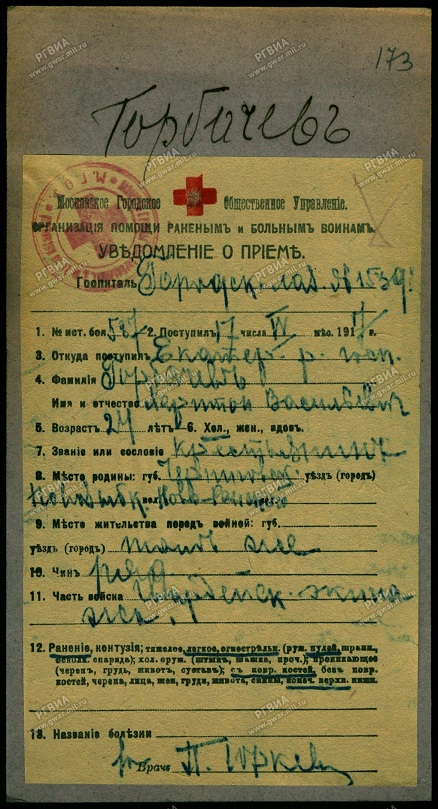 173
Горбачевъ
Московское Городское Общественное Управленіе.
ОРГАНИЗАЦІЯ ПОМОЩИ РАНЕНЫМЪ и БОЛЬНЫМЪ ВОИНАМЪ.
УВѢДОМЛЕНІЕ О ПРІЕМѢ.
Госпиталь Городск. лаз. № 1539
1. № ист. бол. 587 2. Поступилъ 17 числа VI мѣс. 1917 г.
3. Откуда поступилъ Екатер.
4. Фамилія Горбачевъ
Имя и отчество Харитон Васильевич
5. Возрастъ 24 лѣтъ 6. Хол., жен., вдов.
7. Званіе или сословіе крестьянинъ
8. Мѣсто родины: губ. Черниговск. уѣздъ (городъ)
вол.
9. Мѣсто жительства передъ войной: губ.
уѣздъ (городъ) тамъ же
10. Чинъ ряд
11. Часть войска Гвардейск. экипа
жа.
12. Раненіе, контузія; тяжелое, легкое, огнестрѣльн. (руж. пулей, шрапн.,
осколк. снаряда); хол. оруж. (штыкъ, шашка, проч.); проникающее
(черепъ, грудь, животъ, суставъ); съ повр. костей, безъ повр.
костей, черепа, лица, шеи, груди, живота, спины, конеч. верхн. нижн.
13. Названіе болѣзни
Врачъ П. Юркев
РГВИА
www.gwar.mil.ru